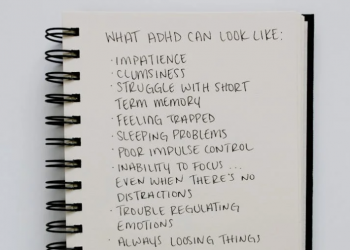 WHAT ADHD CAN LOOK LIKE:
· IMPATIENCE
· CLUMSINESS
· STRUGGLE WITH SHORT
TERM MEMORY
· FEELING TRAPPED
· SLEEPING PROBLEMS
· POOR IMPULSE CONTROL
· INABILITY TO FOCUS ...
EVEN WHEN THERE'S NO
DISTRACTIONS
· TROUBLE REGULATING
EMOTIONS
· ALWAYS LOOSING THINGS